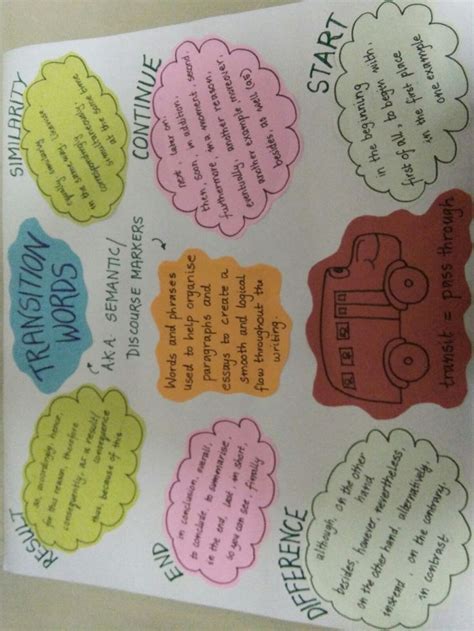 RESULT
so, accordingly, hence,
for this reason, therefore
consequently, as a result/
consequence
thus, because of this
TRANSITION
WORDS
A.K.A. SEMANTIC/
DISCOURSE MARKERS
SIMILARITY
in the same way, likewise,
correspondingly,
simultaneously
at the same time
END
in conclusion, overall,
to conclude, to summarise,
in the end, last, in short,
so you can see, finally
Words and phrases
used to help organise
paragraphs and
essays to create a
smooth and logical
flow throughout the
writing.
CONTINUE
next, later on,
then, soon, in addition,
furthermore, in a moment, second,
eventually, another reason,
another example, moreover,
besides, as well (as)
DIFFERENCE
although, on the other
hand
besides, however, nevertheless,
on the other hand, alternatively,
instead, on the contrary,
in contrast
transit = pass through
START
in the beginning
first of all, to begin with,
in the first place
one example